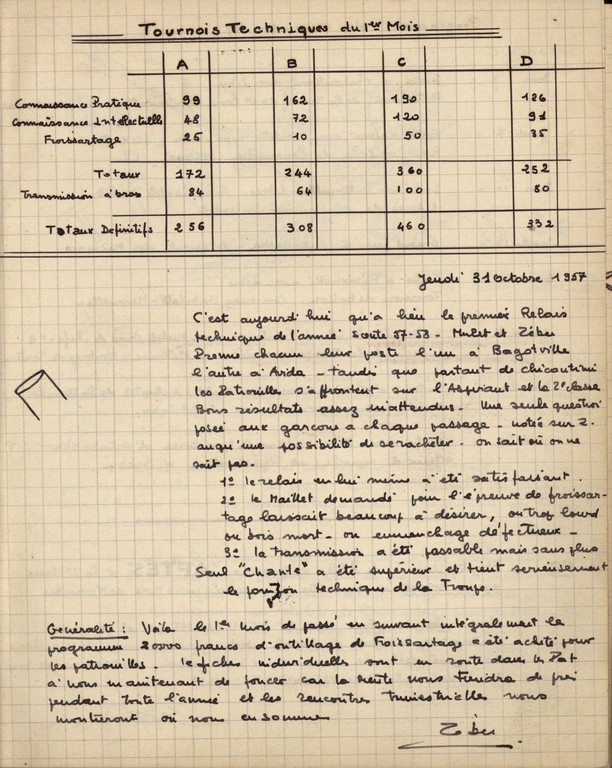 Tournois Techniques du 1er Mois
A B C D
Connaissance Pratique 99 162 190 126
Connaissance Intellectuelle 48 72 120 91
Froissartage 25 10 50 35
Totaux 172 244 360 252
Transmission à bras 84 64 100 80
Totaux Definitifs 256 308 460 332
Jeudi 31 Octobre 1957
C'est aujourd'hui qu'a lieu le premier Relais
technique de l'année scoute 57-58 - Mulet et Zébu
Prenne chacun leur poste l'un à Bagotville
l'autre à Arvida - tandis que partant de Chicoutimi
les Patrouilles s'affrontent sur l'Aspirant et la 2e classe
Bons résultats assez inattendus - Une seule question
posée aux garçons à chaque passage - notée sur 2.
auqu'une possibilité de se racheter. on sait où on ne
sait pas.
1° le relais en lui meme a été satisfaisant.
2° le Maillet demandé pour l'épreuve de froissar-
tage laissait beaucoup à désirer, ou trop lourd
ou bois mort - ou emmenchage défectueux -
3° la transmission a été passable mais sans plus
Seul "Chante" a été supérieur et tient serieusement
le technique de la Troupe.
Généralité : Voila le 1er mois de passé en suivant intégralement le
programme 20000 francs d'outillage de Froissartage a été acheté pour
les patrouilles. le fiches individuelles sont en route dans les Pat
à nous maintenant de foncer car la meute nous tiendra de
pendant toute l'année et les rencontres trimestrielles nous
montreront où nous en sommes
Zébu